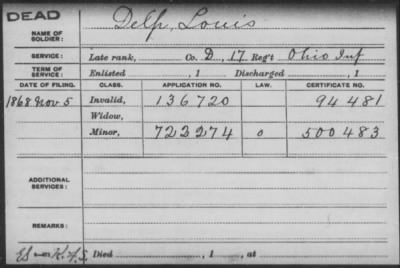 DEAD
NAME OF SOLDIER: Delp, Louis
SERVICE: Late rank, Co. D, 17 Reg't Ohio Inf
TERM OF SERVICE: Enlisted , 1 Discharged , 1
DATE OF FILING. CLASS. APPLICATION NO. LAW. CERTIFICATE NO.
1868 Nov 5 Invalid, 136720 94481
Widow,
Minor, 723274 o 500483
ADDITIONAL SERVICES:
REMARKS:
Died , 1 , at